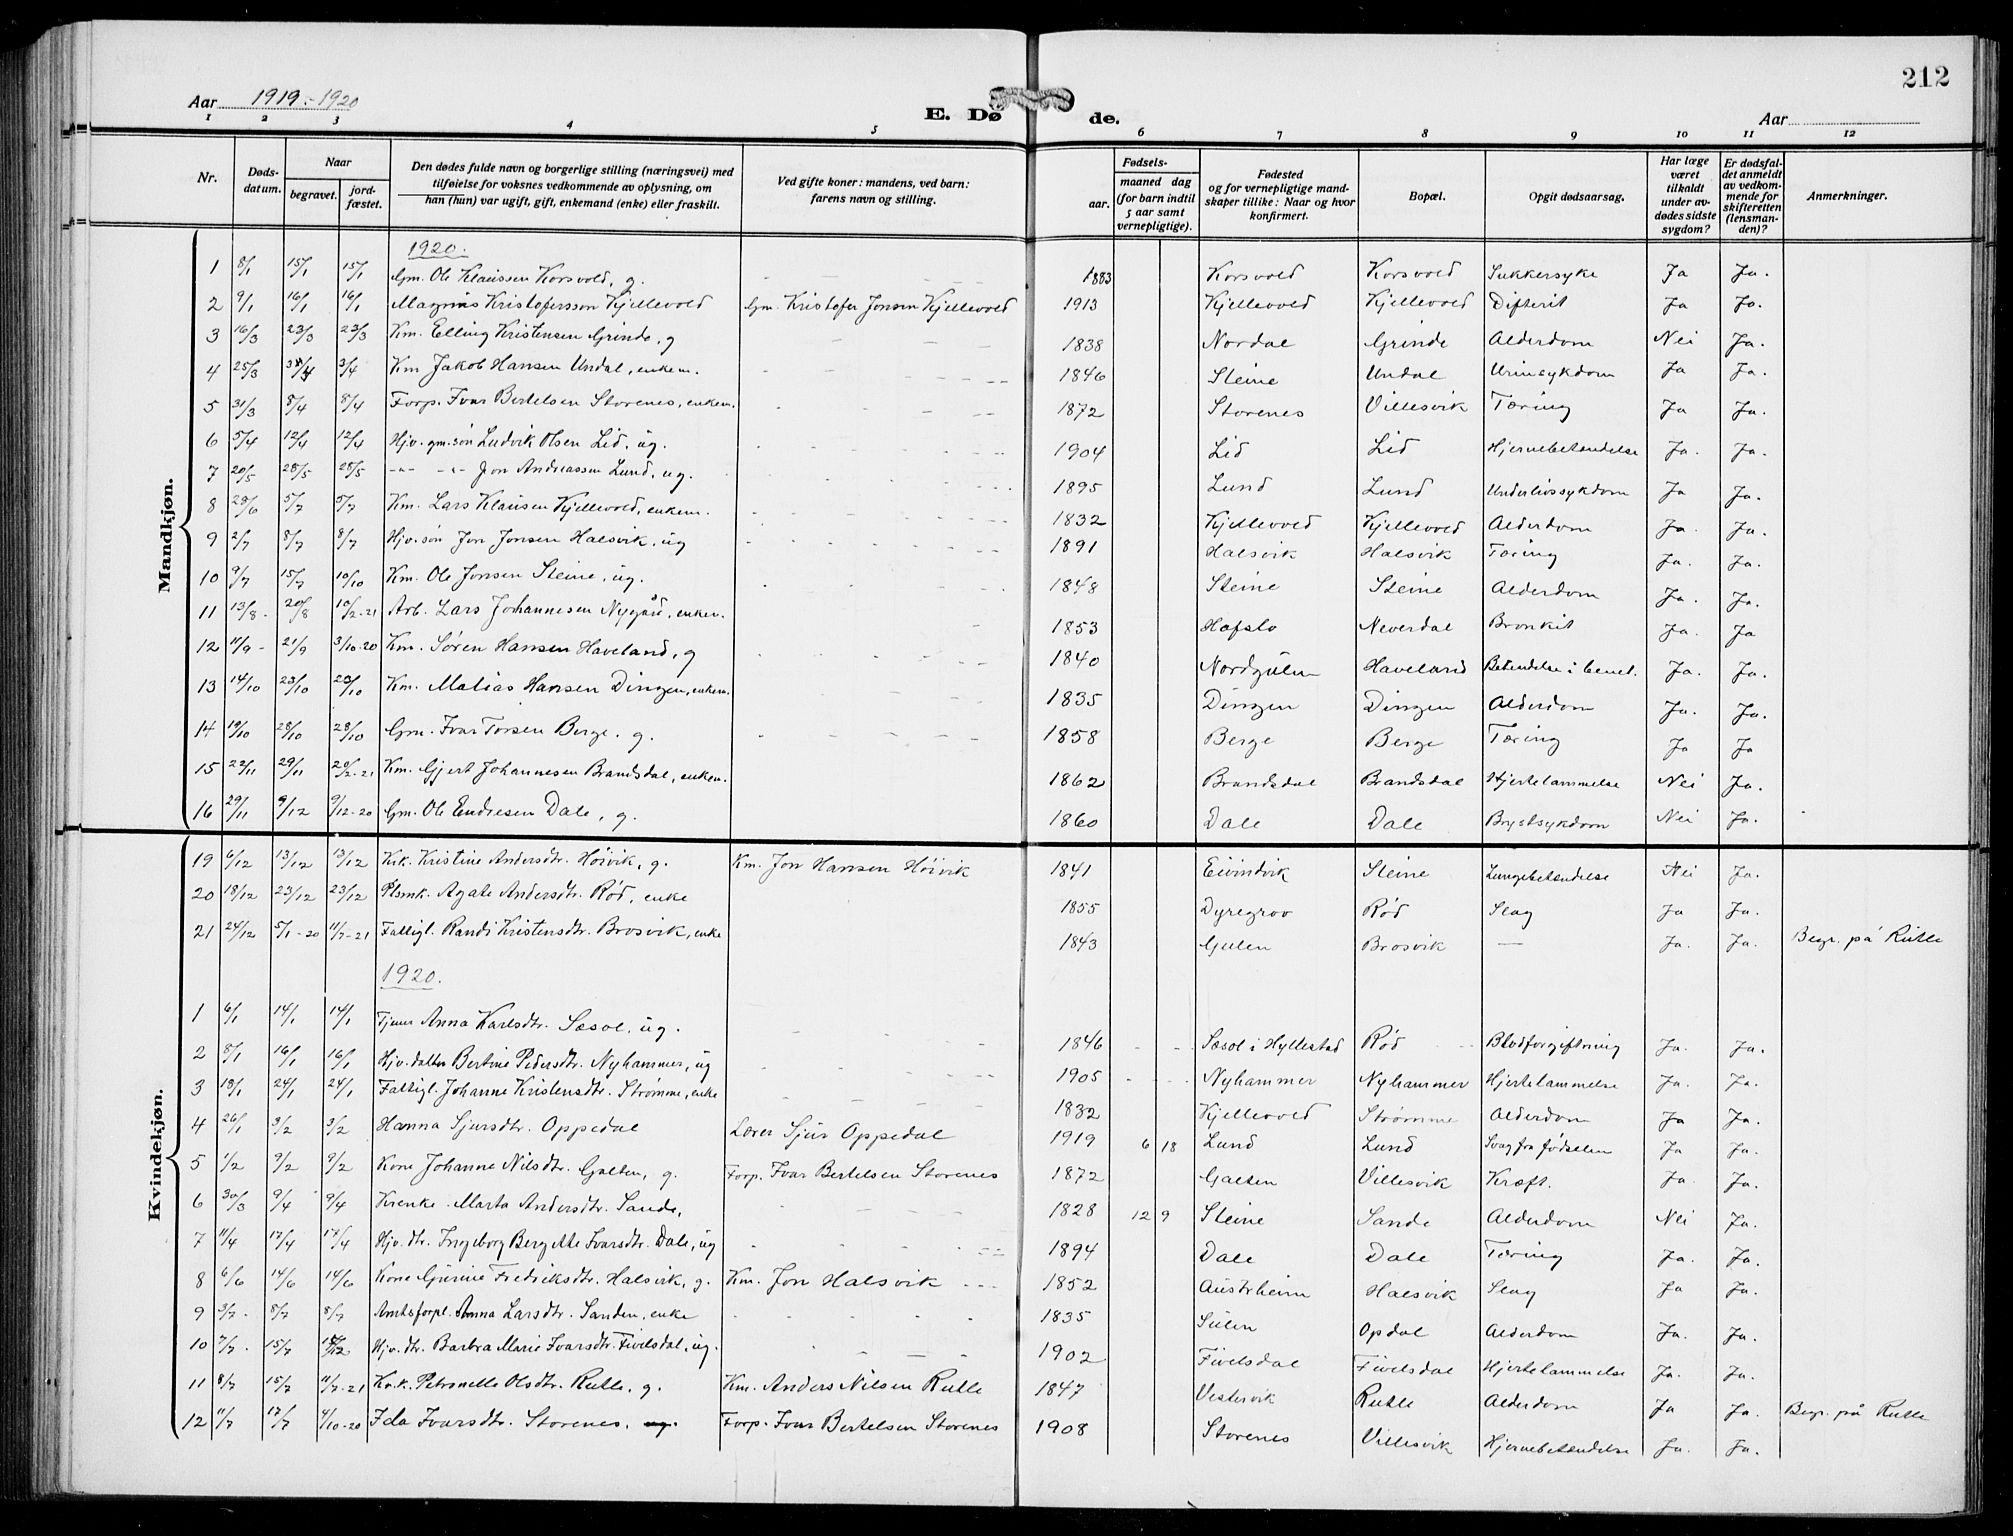 212
Aar 1919-1920
E. Dø
de.
Aar
1 2 3 4 5 6 7 8 9 10 11 12
Nr. Døds-datum. Naar begravet. jord-fæstet. Den dødes fulde navn og borgerlige stilling (næringsvei) med tilføielse for voksnes vedkommende av oplysning, om han (hun) var ugift, gift, enkemand (enke) eller fraskilt. Ved gifte koner: mandens, ved barn: farens navn og stilling. Fødsels- aar. maaned dag (for barn indtil 5 aar samt vernepligtige). Fødested og for vernepligtige mand-skaper tillike: Naar og hvor konfirmert. Bopæl. Opgit dødsaarsag. Har læge været tilkaldt under av-dødes sidste sygdom? Er dødsfal-det anmeldt av vedkom-mende for skifteretten (lensman-den)? Anmerkninger.
Mandkjøn.
1920.
1 8/1 15/1 15/1 Gm. Ole Klaussen Korsvold, g. 1883 Korsvold Korsvold Sukkersyke Ja Ja.
2 9/1 16/1 16/1 Magnus Kristofersson Kjellevold Gm. Kristofer Jonsen Kjellevold 1913 Kjellevold Kjellevold Difterit Ja Ja.
3 16/3 23/3 23/3 Km. Elling Kristensen Grinde, g 1838 Nordal Grinde Alderdom Nei Ja.
4 25/3 3/4 3/4 Km Jakob Hansen Undal, enkem. 1846 Steine Undal Urinsykdom Ja Ja.
5 31/3 8/4 8/4 Forp. Ivar Bertelsen Storenes, enkem. 1872 Storenes Villesvik Tæring Ja Ja.
6 5/4 12/4 12/4 Hjv. gm. søn Ludvik Olsen Lid, ug. 1904 Lid Lid Hjernebetændelse Ja. Ja.
7 20/5 28/5 28/5 -"- -"- Jon Andreassen Lund, ug. 1895 Lund Lund Underlivssykdom Ja Ja.
8 28/6 5/7 5/7 Km. Lars Klausen Kjellevold, enkem. 1832 Kjellevold Kjellevold Alderdom Ja. Ja.
9 2/7 8/7 8/7 Hjv. søn Jon Jonsen Halsvik, ug 1891 Halsvik Halsvik Tæring Ja. Ja.
10 9/7 15/7 10/10 Km. Ole Jonsen Steine, ug. 1848 Steine Steine Alderdom Ja. Ja.
11 13/8 20/8 10/2-21 Arb. Lars Johannesen Nygård, enkem. 1853 Hafslo Neverdal Bronkit Ja. Ja
12 11/9 21/9 3/10-20 Km. Søren Hansen Haveland, g 1840 Nordgulen Haveland Betændelse i benet. Ja. Ja.
13 14/10 23/10 23/10 Km. Matias Hansen Dingen, enkem. 1835 Dingen Dingen Alderdom Ja. Ja.
14 19/10 28/10 28/10 Gm. Ivar Torsen Berge, g. 1858 Berge Berge Tæring Ja Ja
15 22/11 29/11 20/2-21 Km. Gjert Johannesen Brandsdal, enkem. 1862 Brandsdal Brandsdal Hjertelammelse Nei Ja.
16 29/11 9/12 9/12-20 Gm. Ole Endresen Dale, g. 1860 Dale Dale Brystsykdom Nei Ja.
Kvindekjøn.
19 6/12 13/12 13/12 Krk. Kristine Andersdtr. Høivik, g. Km. Jon Hansen Høivik 1841 Eivindvik Steine Lungebetændelse Nei Ja.
20 18/12 23/12 23/12 Plsmk. Agate Andersdtr. Rød, enke 1855 Dyregrov Rød Slag Ja Ja.
21 24/12 5/1-20 11/7-21 Fattigl. Randi Kristensdtr. Brosvik, enke 1843 Gulen Brosvik — Ja. Ja. Begr. på Rutle
1920.
1 6/1 14/1 14/1 Tjener Anna Karlsdtr. Sæsol, ug. 1846 Sæsol i Hyllestad Rød Blodforgiftning Ja. Ja.
2 8/1 16/1 16/1 Hjv. datter Bertine Pedersdtr. Nyhammer, ug 1905 Nyhammer Nyhammer Hjertelammelse Ja. Ja.
3 18/1 24/1 24/1 Fattigl. Johanne Kristensdtr. Strømme, enke 1832 Kjellevold Strømme Alderdom Ja Ja.
4 26/1 3/2 3/2 Hanna Sjursdtr. Oppedal Lærer Sjur Oppedal 1919 6 18 Lund Lund Svag fra fødselen Ja Ja.
5 1/2 9/2 9/2 Kone Johanne Nilsdtr. Galten, g. Forp. Ivar Bertelsen Storenes 1872 Galten Villesvik Kræft. Ja. Ja.
6 30/3 9/4 9/4 Krenke. Marta Andersdtr. Sande, 1828 12 9 Steine Sande Alderdom Nei Ja.
7 11/4 17/4 17/4 Hjv. dtr. Ingeborg Bergitte Ivarsdtr. Dale, ug 1894 Dale Dale Tæring Ja. Ja.
8 6/6 14/6 14/6 Kone Gurine Fredriksdtr. Halsvik, g. Km. Jon Halsvik 1852 Austrheim Halsvik Slag Ja Ja.
9 3/7 8/7 8/7 Amtsforpl. Anna Larsdtr. Sanden, enke 1835 Sulen Opdal Alderdom Ja. Ja.
10 7/7 15/7 Hjv. dtr. Barbra Marie Ivarsdtr. Fivelsdal, ug. 1902 Fivelsdal Fivelsdal Hjertelammelse Ja. Ja.
11 8/7 15/7 11/7-21 Krk. Petronelle Olsdtr. Rutle, g. Km. Anders Nilsen Rutle 1847 Vestervik Rutle Alderdom Ja Ja. Begr. på Rutle
12 11/7 17/7 4/10-20 Ida Ivarsdtr. Storenes, ug. Forp. Ivar Bertelsen Storenes 1908 Storenes Villesvik Hjernebetændelse Ja. Ja.